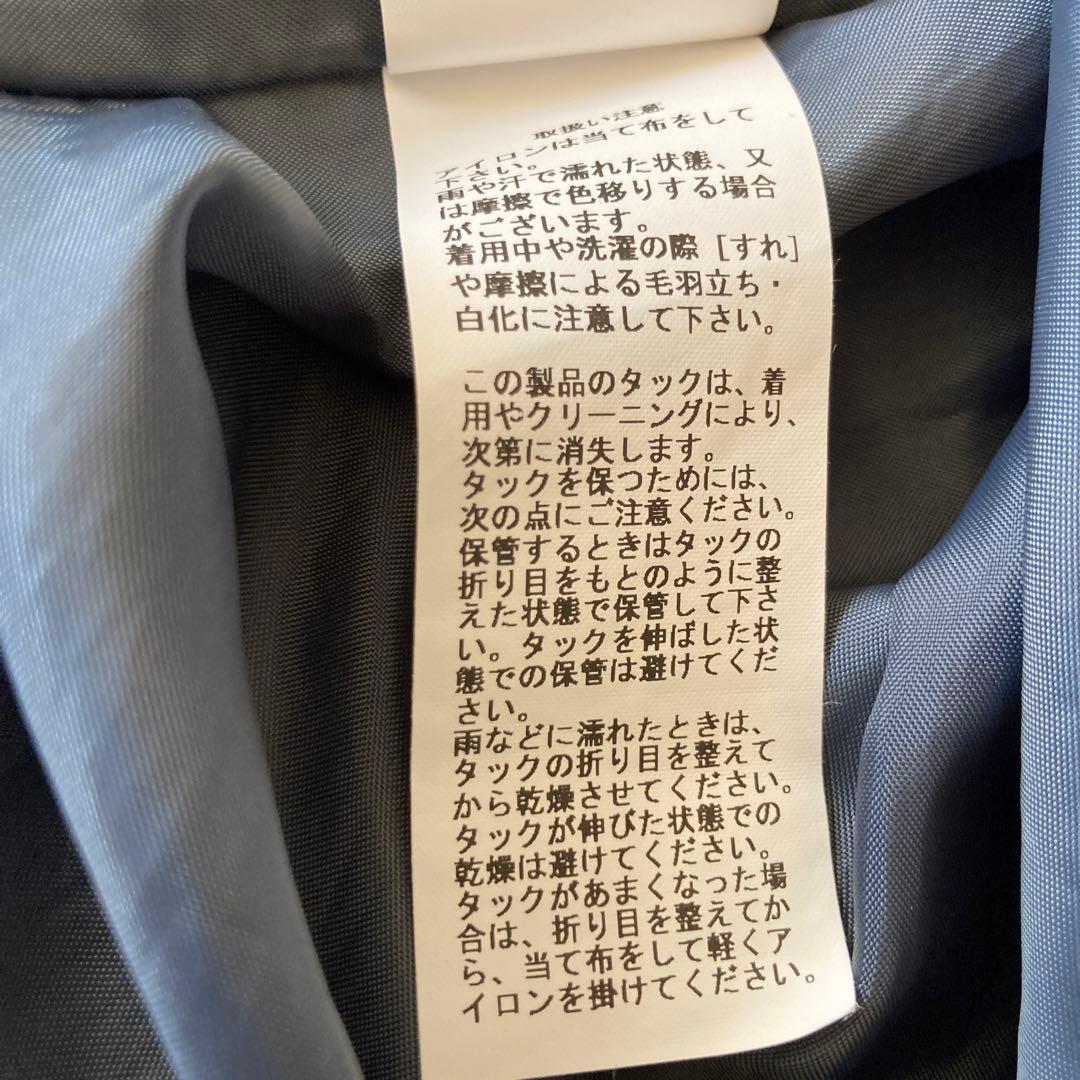 取扱い注意
アイロンは当て布をして
下さい。
雨や汗で濡れた状態、又
は摩擦で色移りする場合
がございます。
着用中や洗濯の際[すれ]
や摩擦による毛羽立ち・
白化に注意して下さい。
この製品のタックは、着
用やクリーニングにより、
次第に消失します。
タックを保つためには、
次の点にご注意ください。
保管するときはタックの
折り目をもとのように整
えた状態で保管して下さ
い。タックを伸ばした状
態での保管は避けてくだ
さい。
雨などに濡れたときは、
タックの折り目を整えて
から乾燥させてください。
タックが伸びた状態での
乾燥は避けてください。
タックがあまくなった場
合は、折り目を整えてか
ら、当て布をして軽くア
イロンを掛けてください。